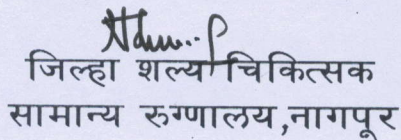 जिल्हा शल्य चिकित्सक
सामान्य रुग्णालय,नागपूर